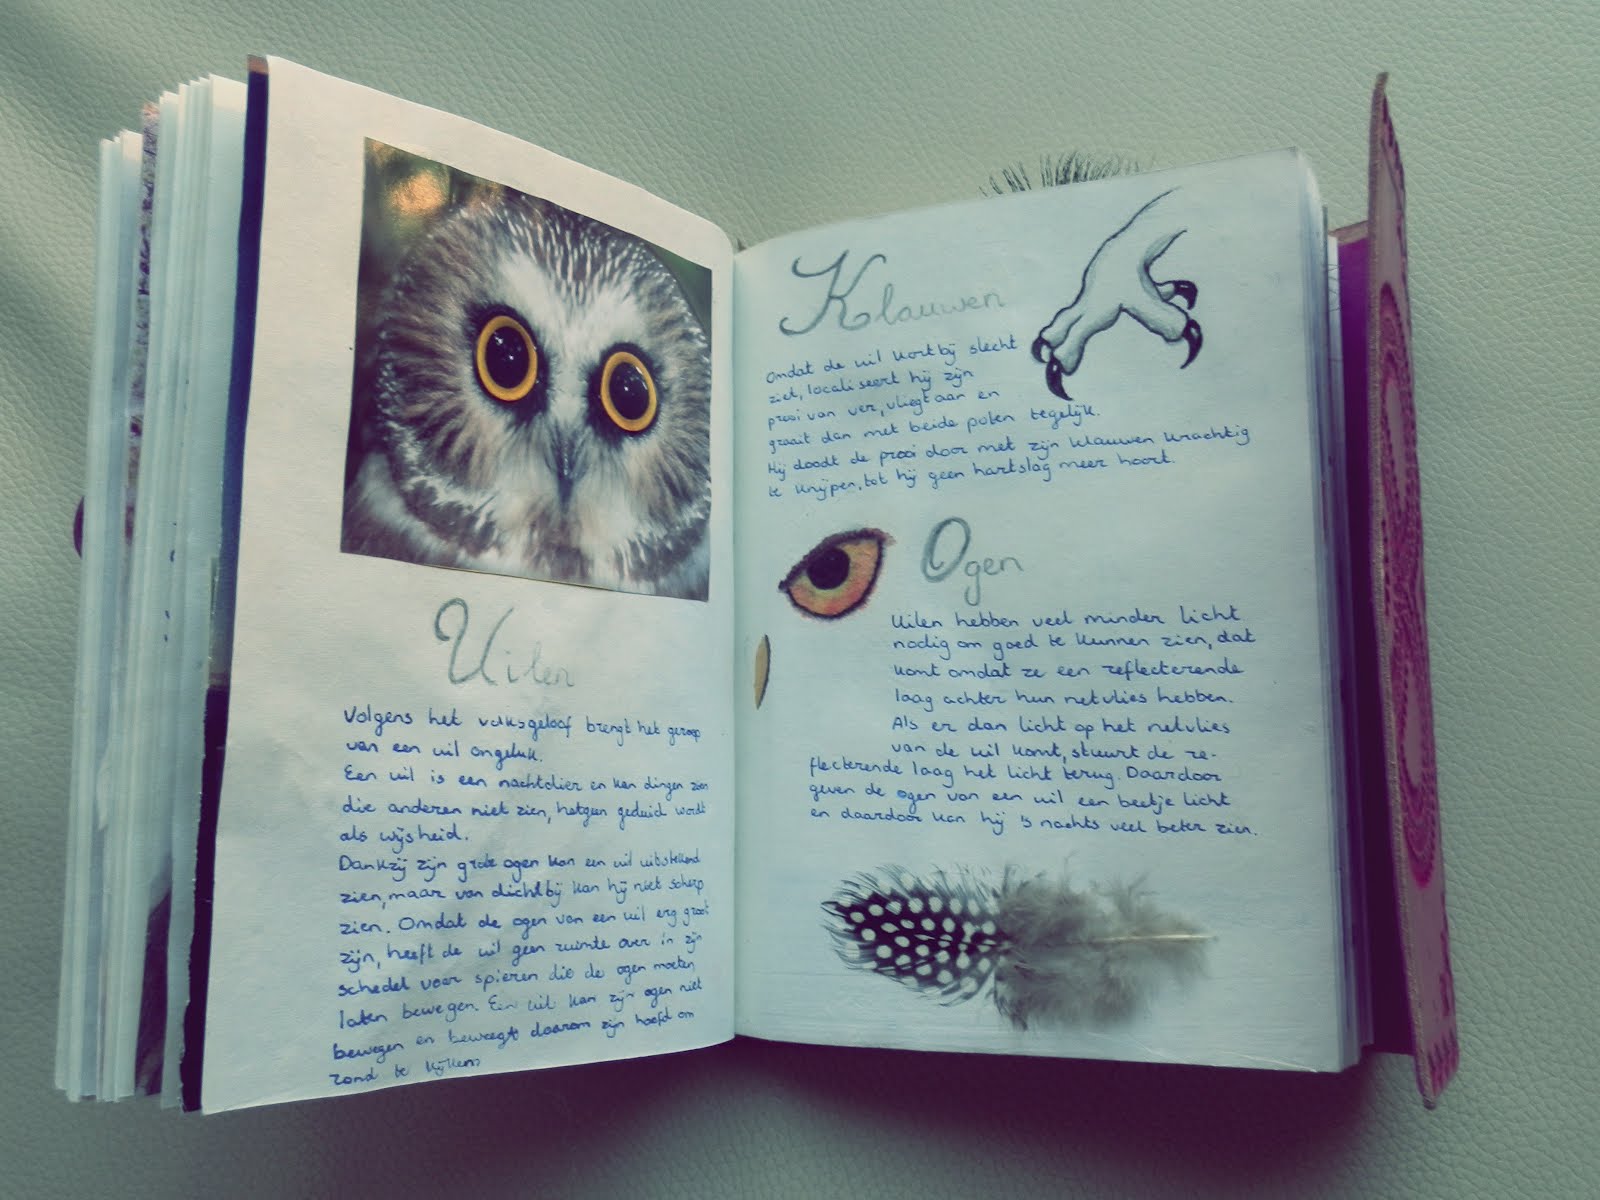 Uilen
Volgens het volksgeloof brengt het geroep
van een uil ongeluk.
Een uil is een nachtdier en kan dingen zien
die anderen niet zien, hetgeen geduid wordt
als wijsheid.
Dankzij zijn grote ogen kan een uil uitstekend
zien, maar van dichtbij kan hij niet scherp
zien. Omdat de ogen van een uil erg groot
zijn, heeft de uil geen ruimte over in zijn
schedel voor spieren die de ogen moeten
laten bewegen. Een uil kan zijn ogen niet
bewegen en beweegt daarom zijn hoofd om
rond te kijken.
Klauwen
Omdat de uil kortbij slecht
ziet, localiseert hij zijn
prooi van ver, vliegt aan en
graait dan met beide poten tegelijk.
Hij doodt de prooi door met zijn klauwen krachtig
te knijpen, tot hij geen hartslag meer hoort.
Ogen
Uilen hebben veel minder licht
nodig om goed te kunnen zien, dat
komt omdat ze een reflecterende
laag achter hun netvlies hebben.
Als er dan licht op het netvlies
van de uil komt, stuurt de re-
flecterende laag het licht terug. Daardoor
geven de ogen van een uil een beetje licht
en daardoor kan hij 's nachts veel beter zien.